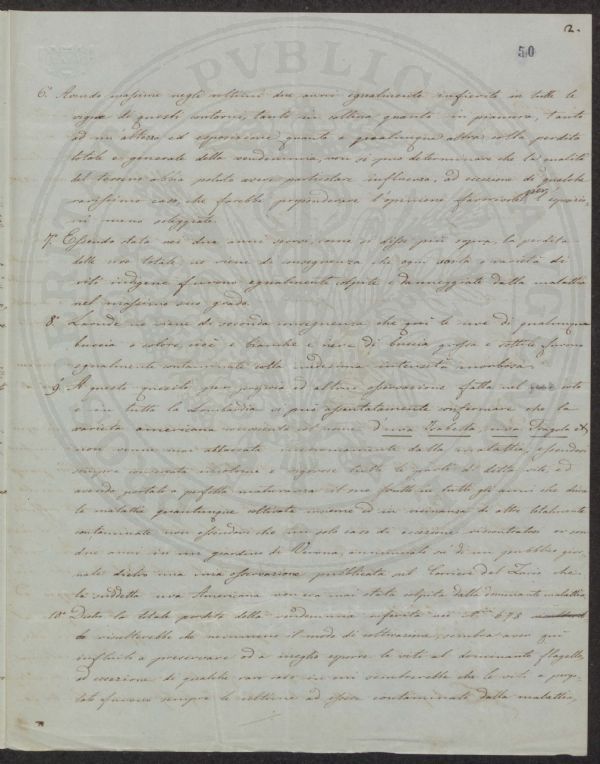 2.
50
6. Avendo massime negli ultimi due anni egualmente infierito in tutte le
vigne di questi contorni, tanto in collina quanto in pianura, tanto
ad un'altezza ed esposizione quanto a qualunque altra colla perdita
totale e generale della vendemmia, non si può determinare che la qualità
del terreno abbia potuto avere particolare influenza, ad eccezione di qualche
rarissimo caso, che farebbe propendere l'opinione favorevole
meno soleggiate.
7. Essendo stata nei due anni scorsi, come si disse più sopra, la perdita
delle uve totale, ne viene di conseguenza che ogni sorta e varietà di
viti indigene furono egualmente colpite e danneggiate dalla malattia
nel massimo suo grado.
8. Laonde ne viene di seconda conseguenza che qui le uve di qualunque
buccia e colore, cioè e bianche e nere di buccia grossa e sottile furono
egualmente contaminate colla medesima intensità morbosa.
9. A questo quesito per propria ed altrui osservazione fatta nel
e in tutta la Lombardia si può apertamente confermare che la
varietà americana conosciuta col nome d'uva Isabella, uva fragola &
non venne mai attaccata menomamente dalla malattia, essendosi
sempre conservata incolume e vigorosa tutte le parti di della vite, ed
avendo portato a perfetta maturanza il suo frutto in tutti gli anni che dura
la malattia quantunque coltivata insieme ed in vicinanza di altre totalmente
contaminate non essendovi che un solo caso di eccezione riscontratosi or sono
due anni in un giardino di Verona, annunciato su di un pubblico gior-
nale dietro una mia osservazione pubblicata sul Corriere del Lario che
la suddetta uva Americana non era mai stata colpita dalla dominante malattia.
10. Dietro la totale perdita della vendemmia riferita nei N. 6 7 8
risulterebbe che nemmeno il modo di coltivazione sembra aver qui
influito a preservare od a meglio esporre le viti al dominante flagello,
ad eccezione di qualche raro caso in cui sembrerebbe che le viti a pergo-
lato furono sempre le ultime ad essere contaminate dalla malattia,